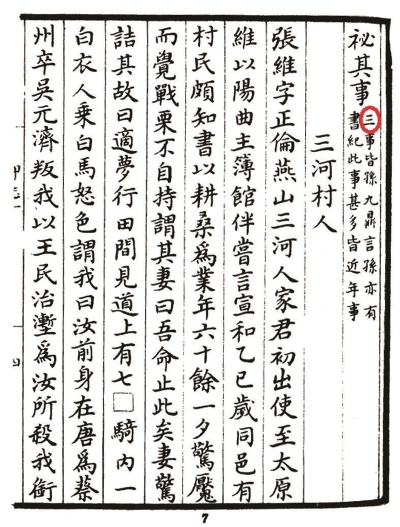 祕其事
三事皆孫九鼎言孫亦有
書紀此事甚多皆近年事
三河村人
張維字正倫燕山三河人家君初出使至太原
維以陽曲主簿館伴嘗言宣和乙巳歲同邑有
村民頗知書以耕桑爲業年六十餘一夕驚魘
而覺戰栗不自持謂其妻曰吾命止此矣妻驚
詰其故曰適夢行田間見道上有七□騎內一
白衣人乘白馬怒色謂我曰汝前身在唐爲蔡
州卒吳元濟叛我以王民治塹爲汝所殺我銜
7